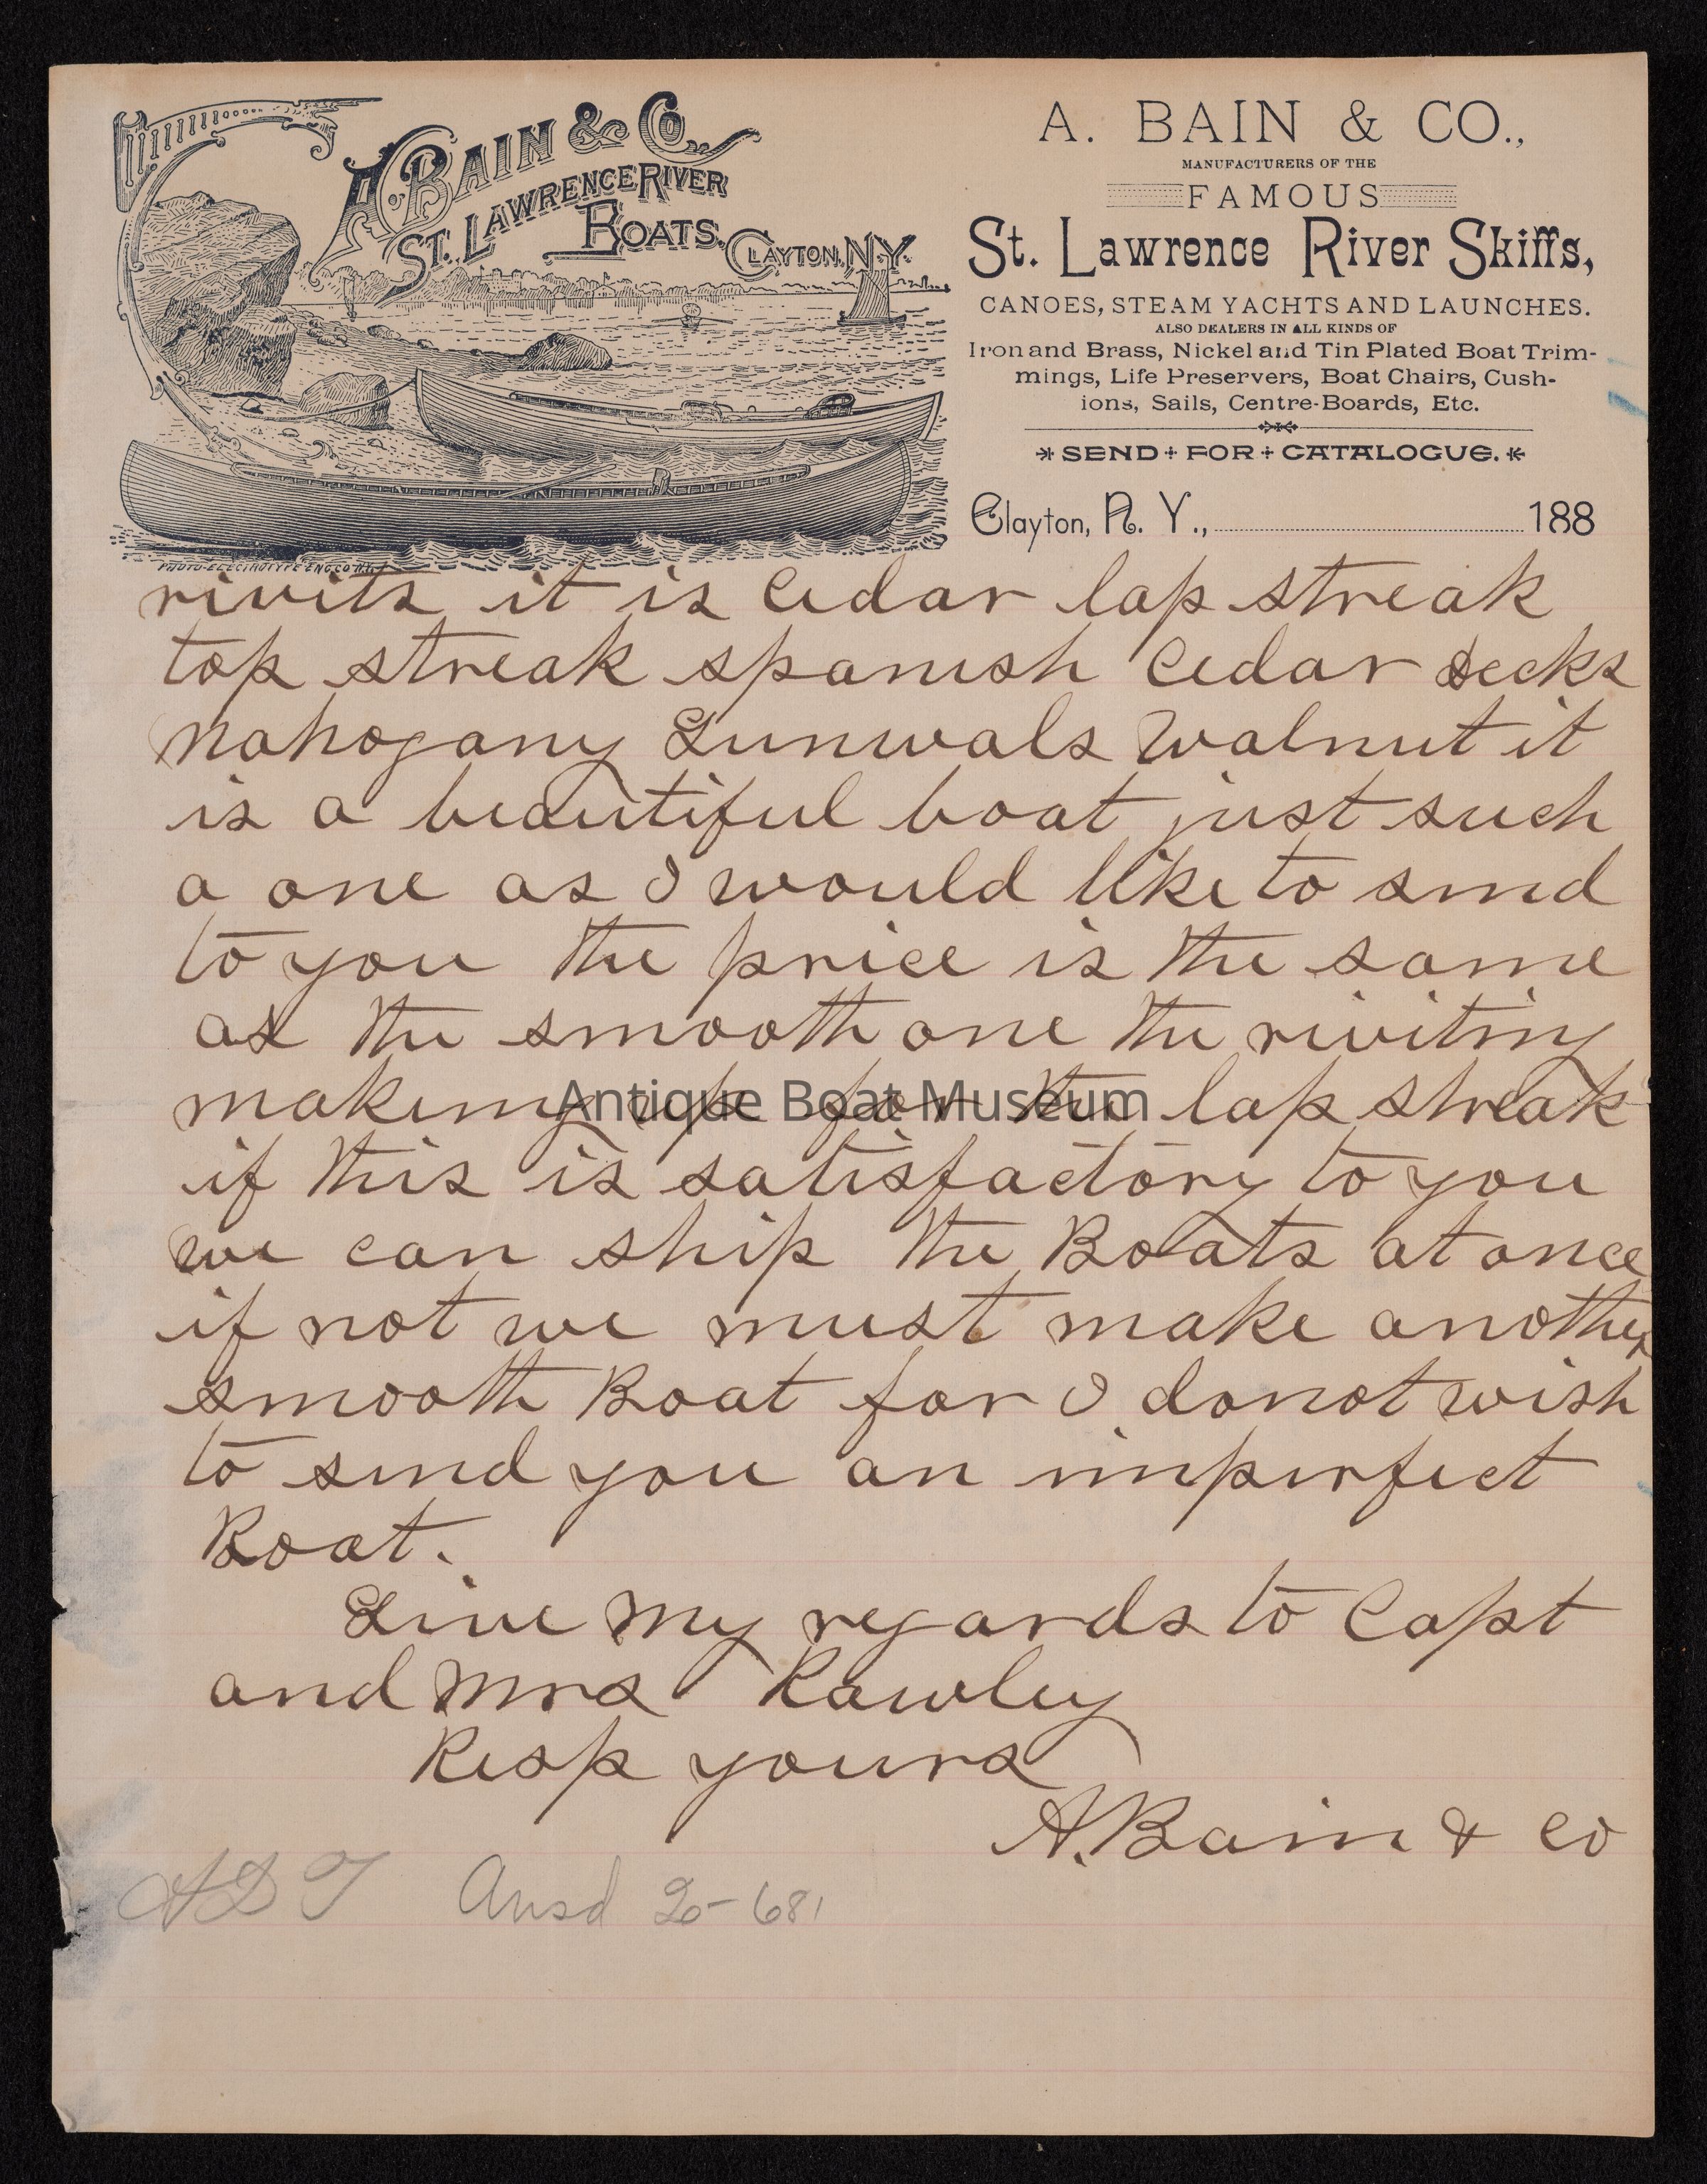 A. BAIN & CO.
ST. LAWRENCE RIVER
BOATS, CLAYTON, N.Y.
PHOTO-ELECTROTYPE ENG. CO. N.Y.
A. BAIN & CO.,
MANUFACTURERS OF THE
FAMOUS
St. Lawrence River Skiffs,
CANOES, STEAM YACHTS AND LAUNCHES.
ALSO DEALERS IN ALL KINDS OF
Iron and Brass, Nickel and Tin Plated Boat Trim-
mings, Life Preservers, Boat Chairs, Cush-
ions, Sails, Centre-Boards, Etc.
SEND + FOR + CATALOGUE.
Clayton, N. Y., 188
rivits it is Cedar lap streak
top streak spanish Cedar decks
Mahogany Gunwals Walnut it
is a beautiful boat just such
a one as I would like to send
to you the price is the same
as the smooth one the riviting
making up for the lap streak
if this is satisfactory to you
we can ship the Boats at once
if not we must make another
smooth Boat for I do not wish
to send you an imperfect
Boat.
Give my regards to Capt
and Mrs Rawley
Resp yours
A. Bain & Co
Ansd
Antique Boat Museum